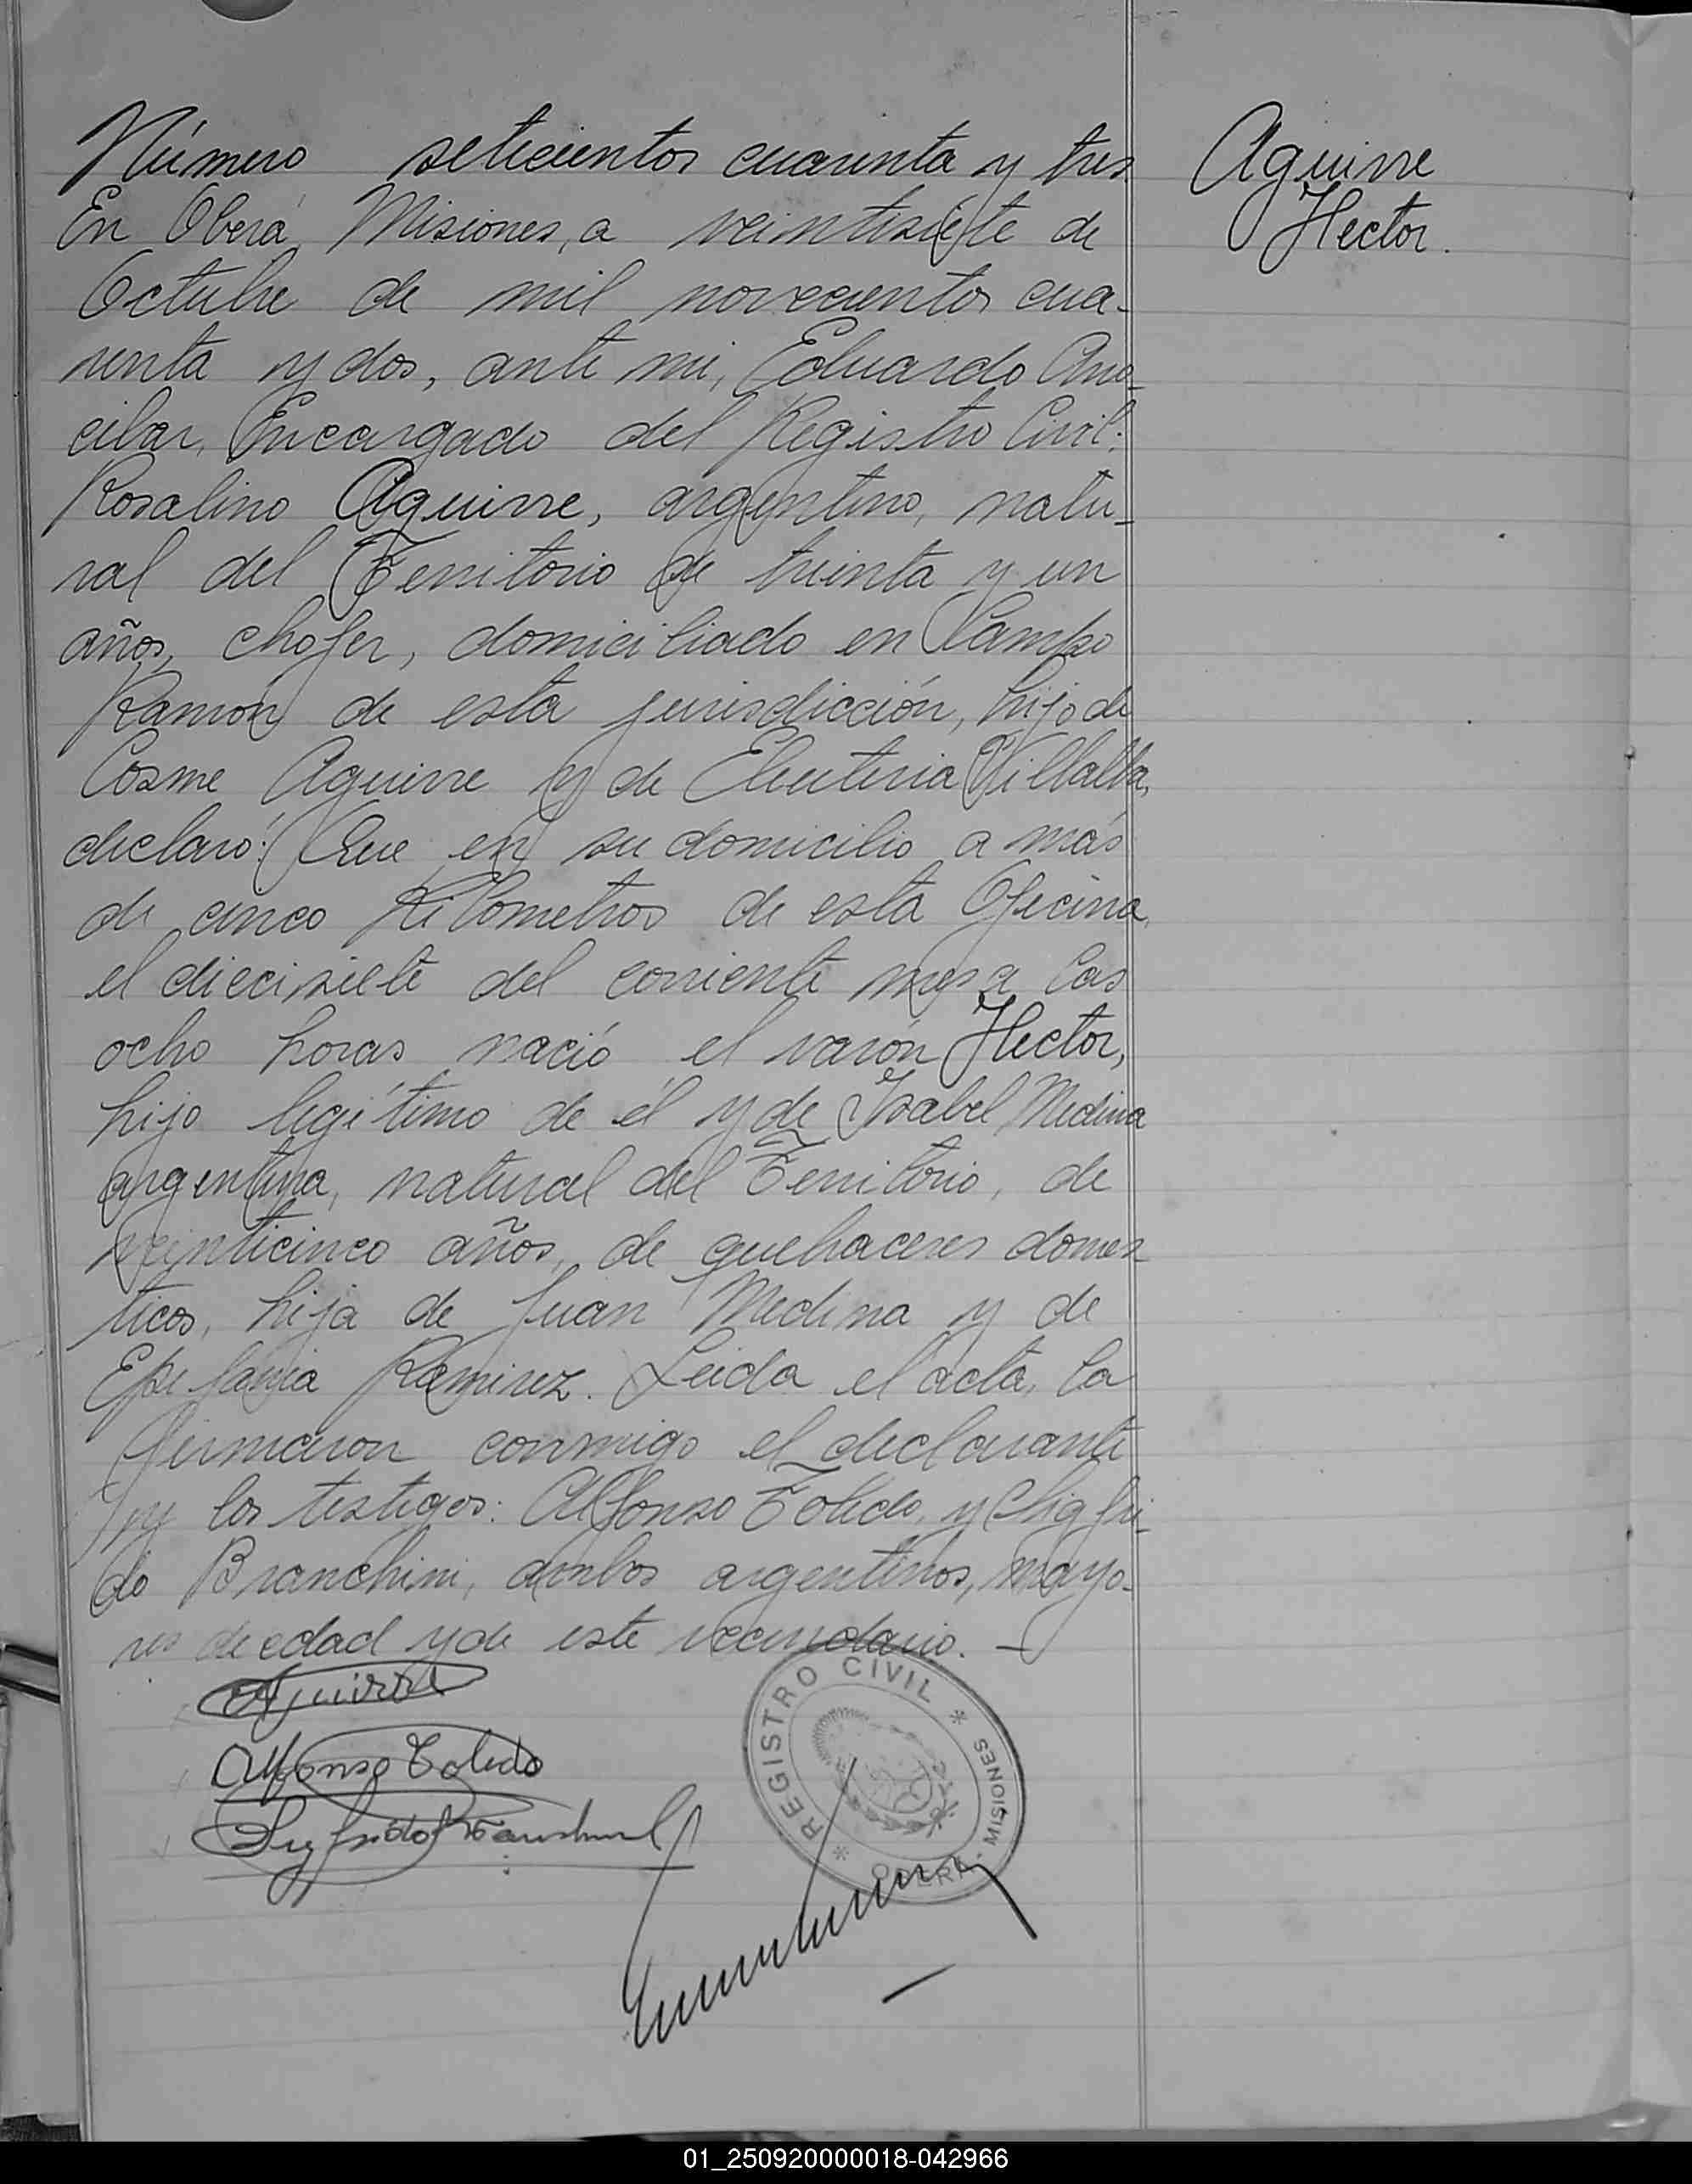 Número setecientos cuarenta y tres
Aguirre
Hector.
En Oberá, Misiones, a veintisiete de
Octubre de mil novecientos cua-
renta y dos, ante mi, Eduardo Ano-
cibar, Encargado del Registro Civil:
Rosalino Aguirre, argentino, natu-
ral del Territorio de treinta y un
años, chofer, domiciliado en Campo
Ramón de esta jurisdicción, hijo de
Cosme Aguirre y de Eleuteria Villalba,
declaró: Que en su domicilio a más
de cinco Kilometros de esta Oficina,
el diecisiete del corriente mes a las
ocho horas nació el varón Hector,
hijo legítimo de él y de Isabel Medina
argentina, natural del Territorio, de
veinticinco años, de quehaceres domes
ticos, hija de Juan Medina y de
Epifania Ramirez. Leida el acta, la
firmaron conmigo el declarante
y los testigos: Alfonso Toledo, y Sigfri-
do Branchini, ambos argentinos, mayo-
res de edad y de este vecindario. —
Aguirre
Alfonso Toledo
Sigfrido Branchini
REGISTRO CIVIL * MISIONES - OBERA *
01_250920000018-042966